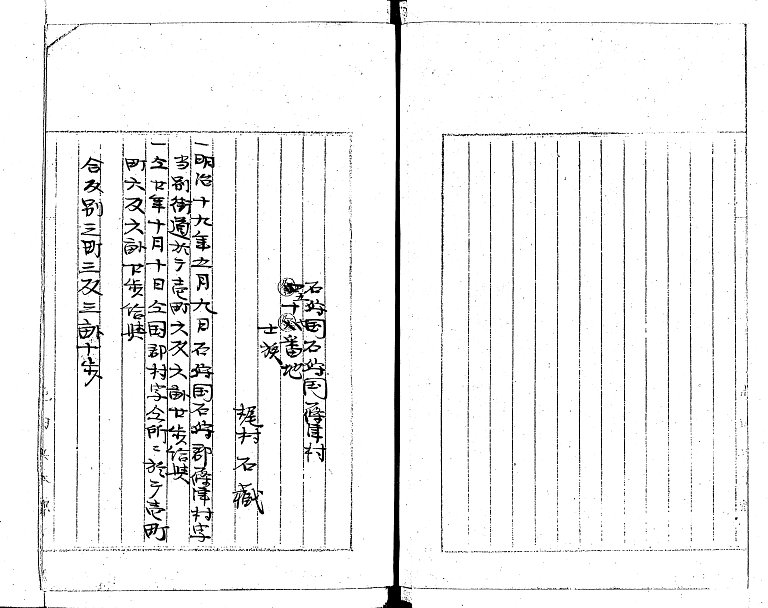 石狩国石狩国篠津村
番地
士族
梶村石蔵
一明治十九年五月九日石狩国石狩郡篠津村字
当別街道於テ壱町六反六畝廿歩給与
一仝廿年十月十日仝国郡村字仝所ニ於テ壱町
町六反六畝廿歩給与
合反別三町三反三畝十歩